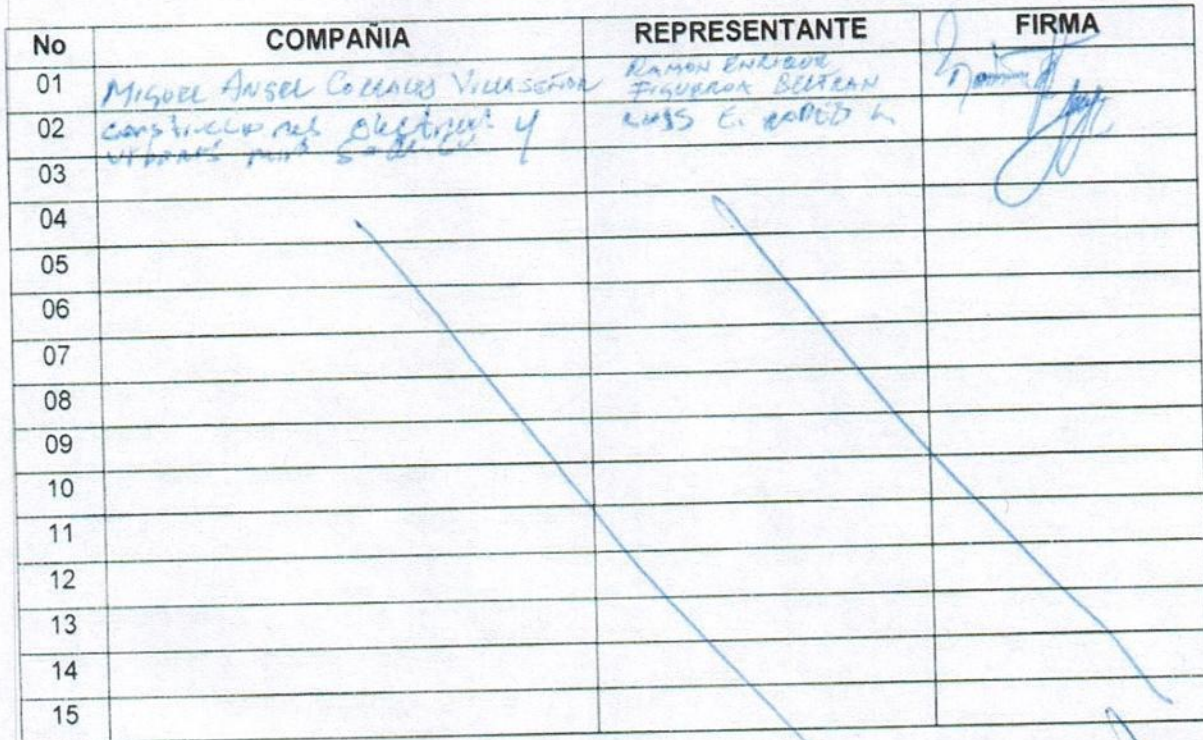 No COMPAÑIA REPRESENTANTE FIRMA
01 MIGUEL ANGEL CORRALES VILLASEÑOR RAMON ENRIQUE
FIGUEROA BELTRAN
02 construcciones electricas y LUIS E.
urbanas
03
04
05
06
07
08
09
10
11
12
13
14
15